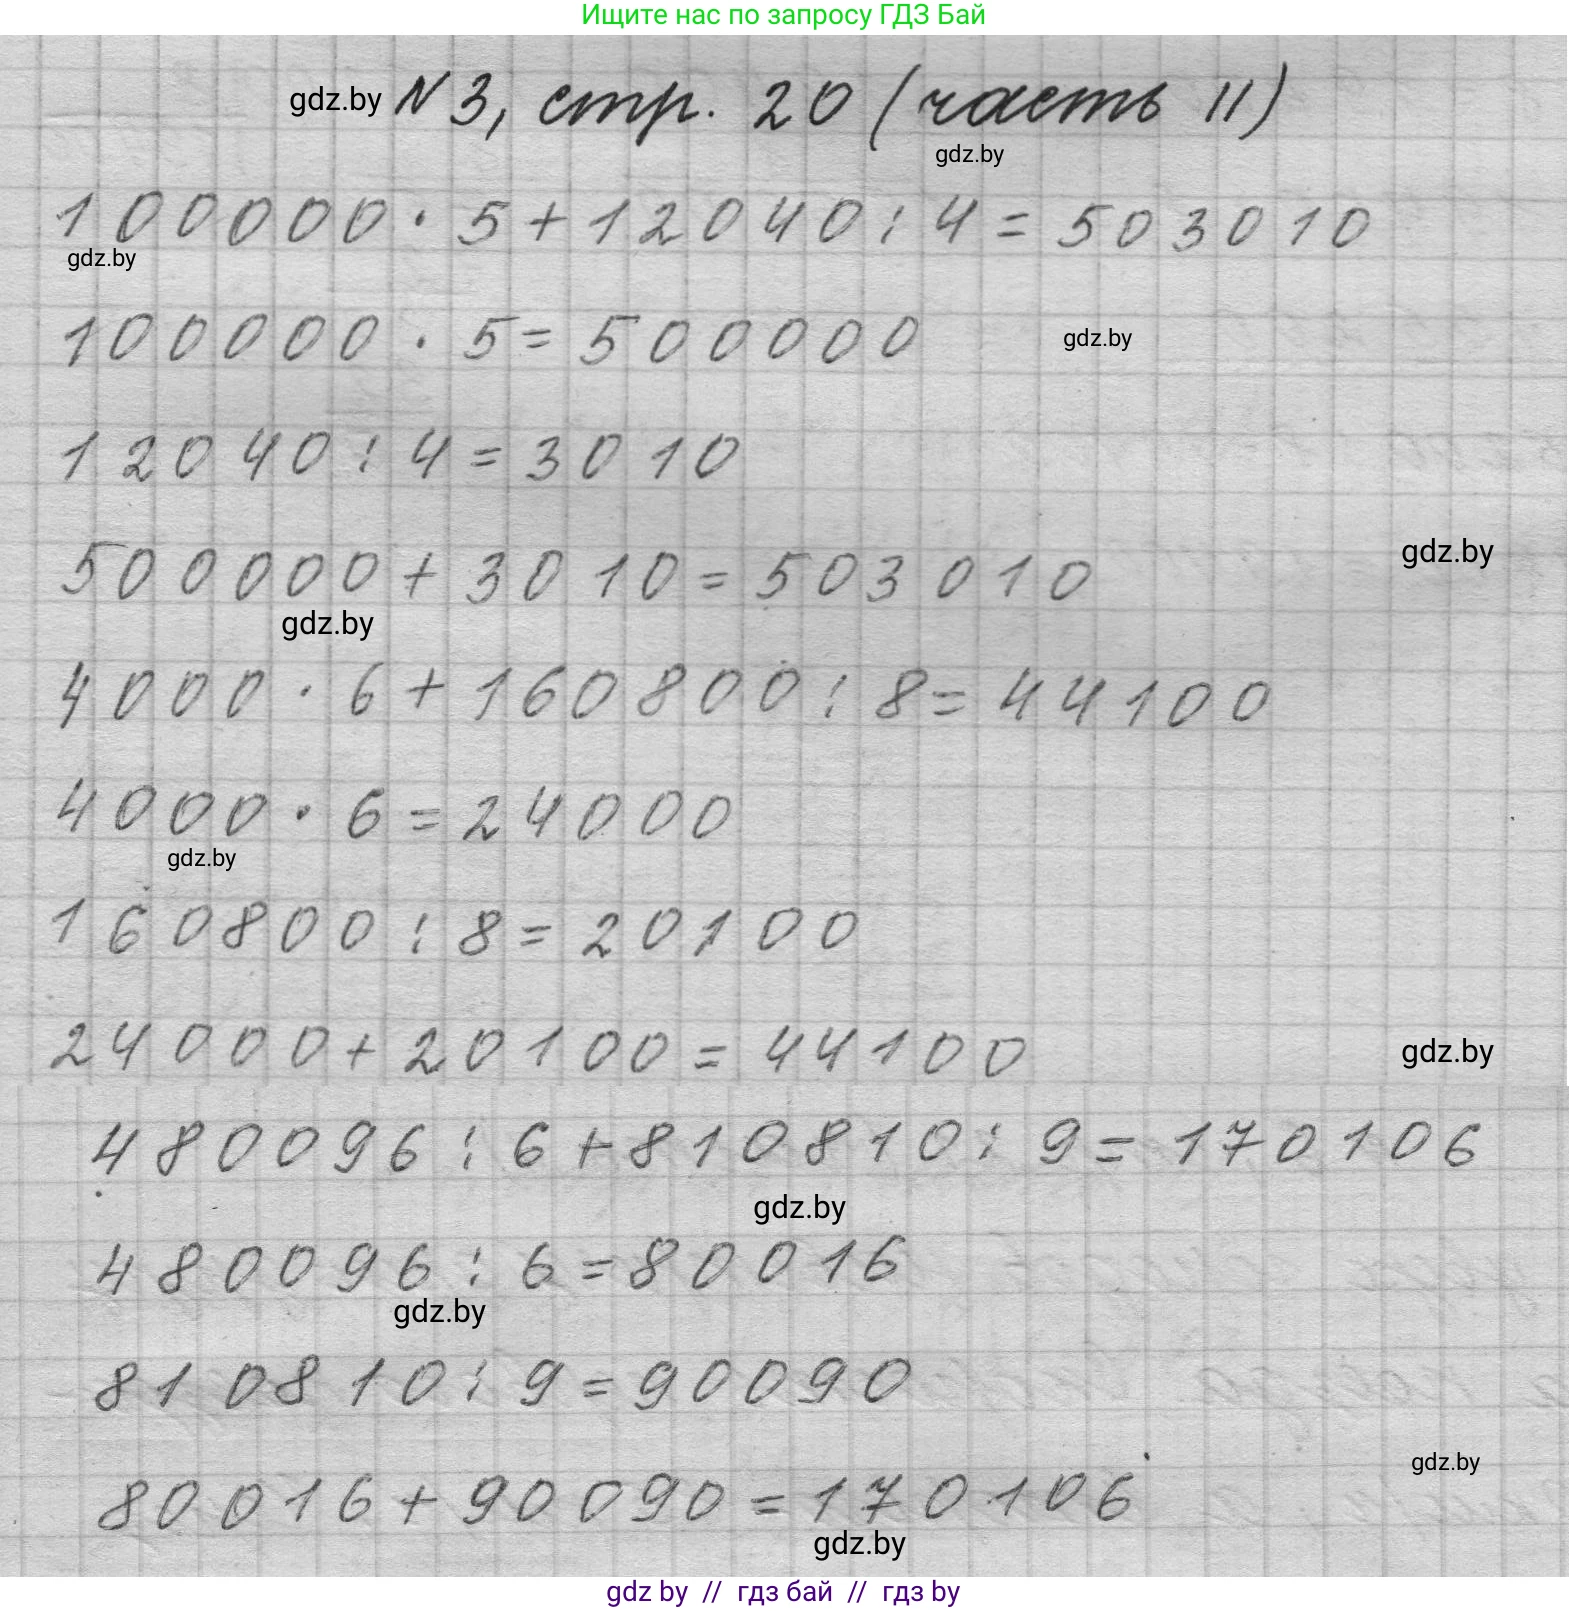 Ищите нас по запросу ГДЗ Бай
gdz.by N 3, стр. 20 (часть II)
gdz.by
100000 · 5 + 12040 : 4 = 503010
gdz.by
100000 · 5 = 500000 gdz.by
12040 : 4 = 3010
500000 + 3010 = 503010 gdz.by
gdz.by
4000 · 6 + 160800 : 8 = 44100
4000 · 6 = 24000
gdz.by
160800 : 8 = 20100
24000 + 20100 = 44100 gdz.by
480096 : 6 + 810810 : 9 = 170106
gdz.by
480096 : 6 = 80016
gdz.by
810810 : 9 = 90090
gdz.by
80016 + 90090 = 170106
gdz.by
gdz by // гдз бай // гдз by